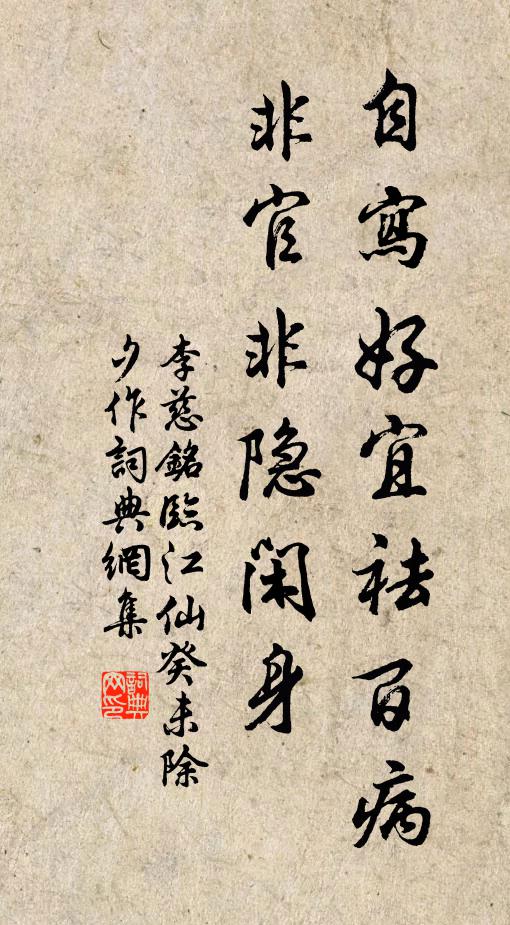 自寫好宜祛百病
非官非隐闲身
李慈銘臨江仙癸未除
夕作詞典網集
詞典
网印